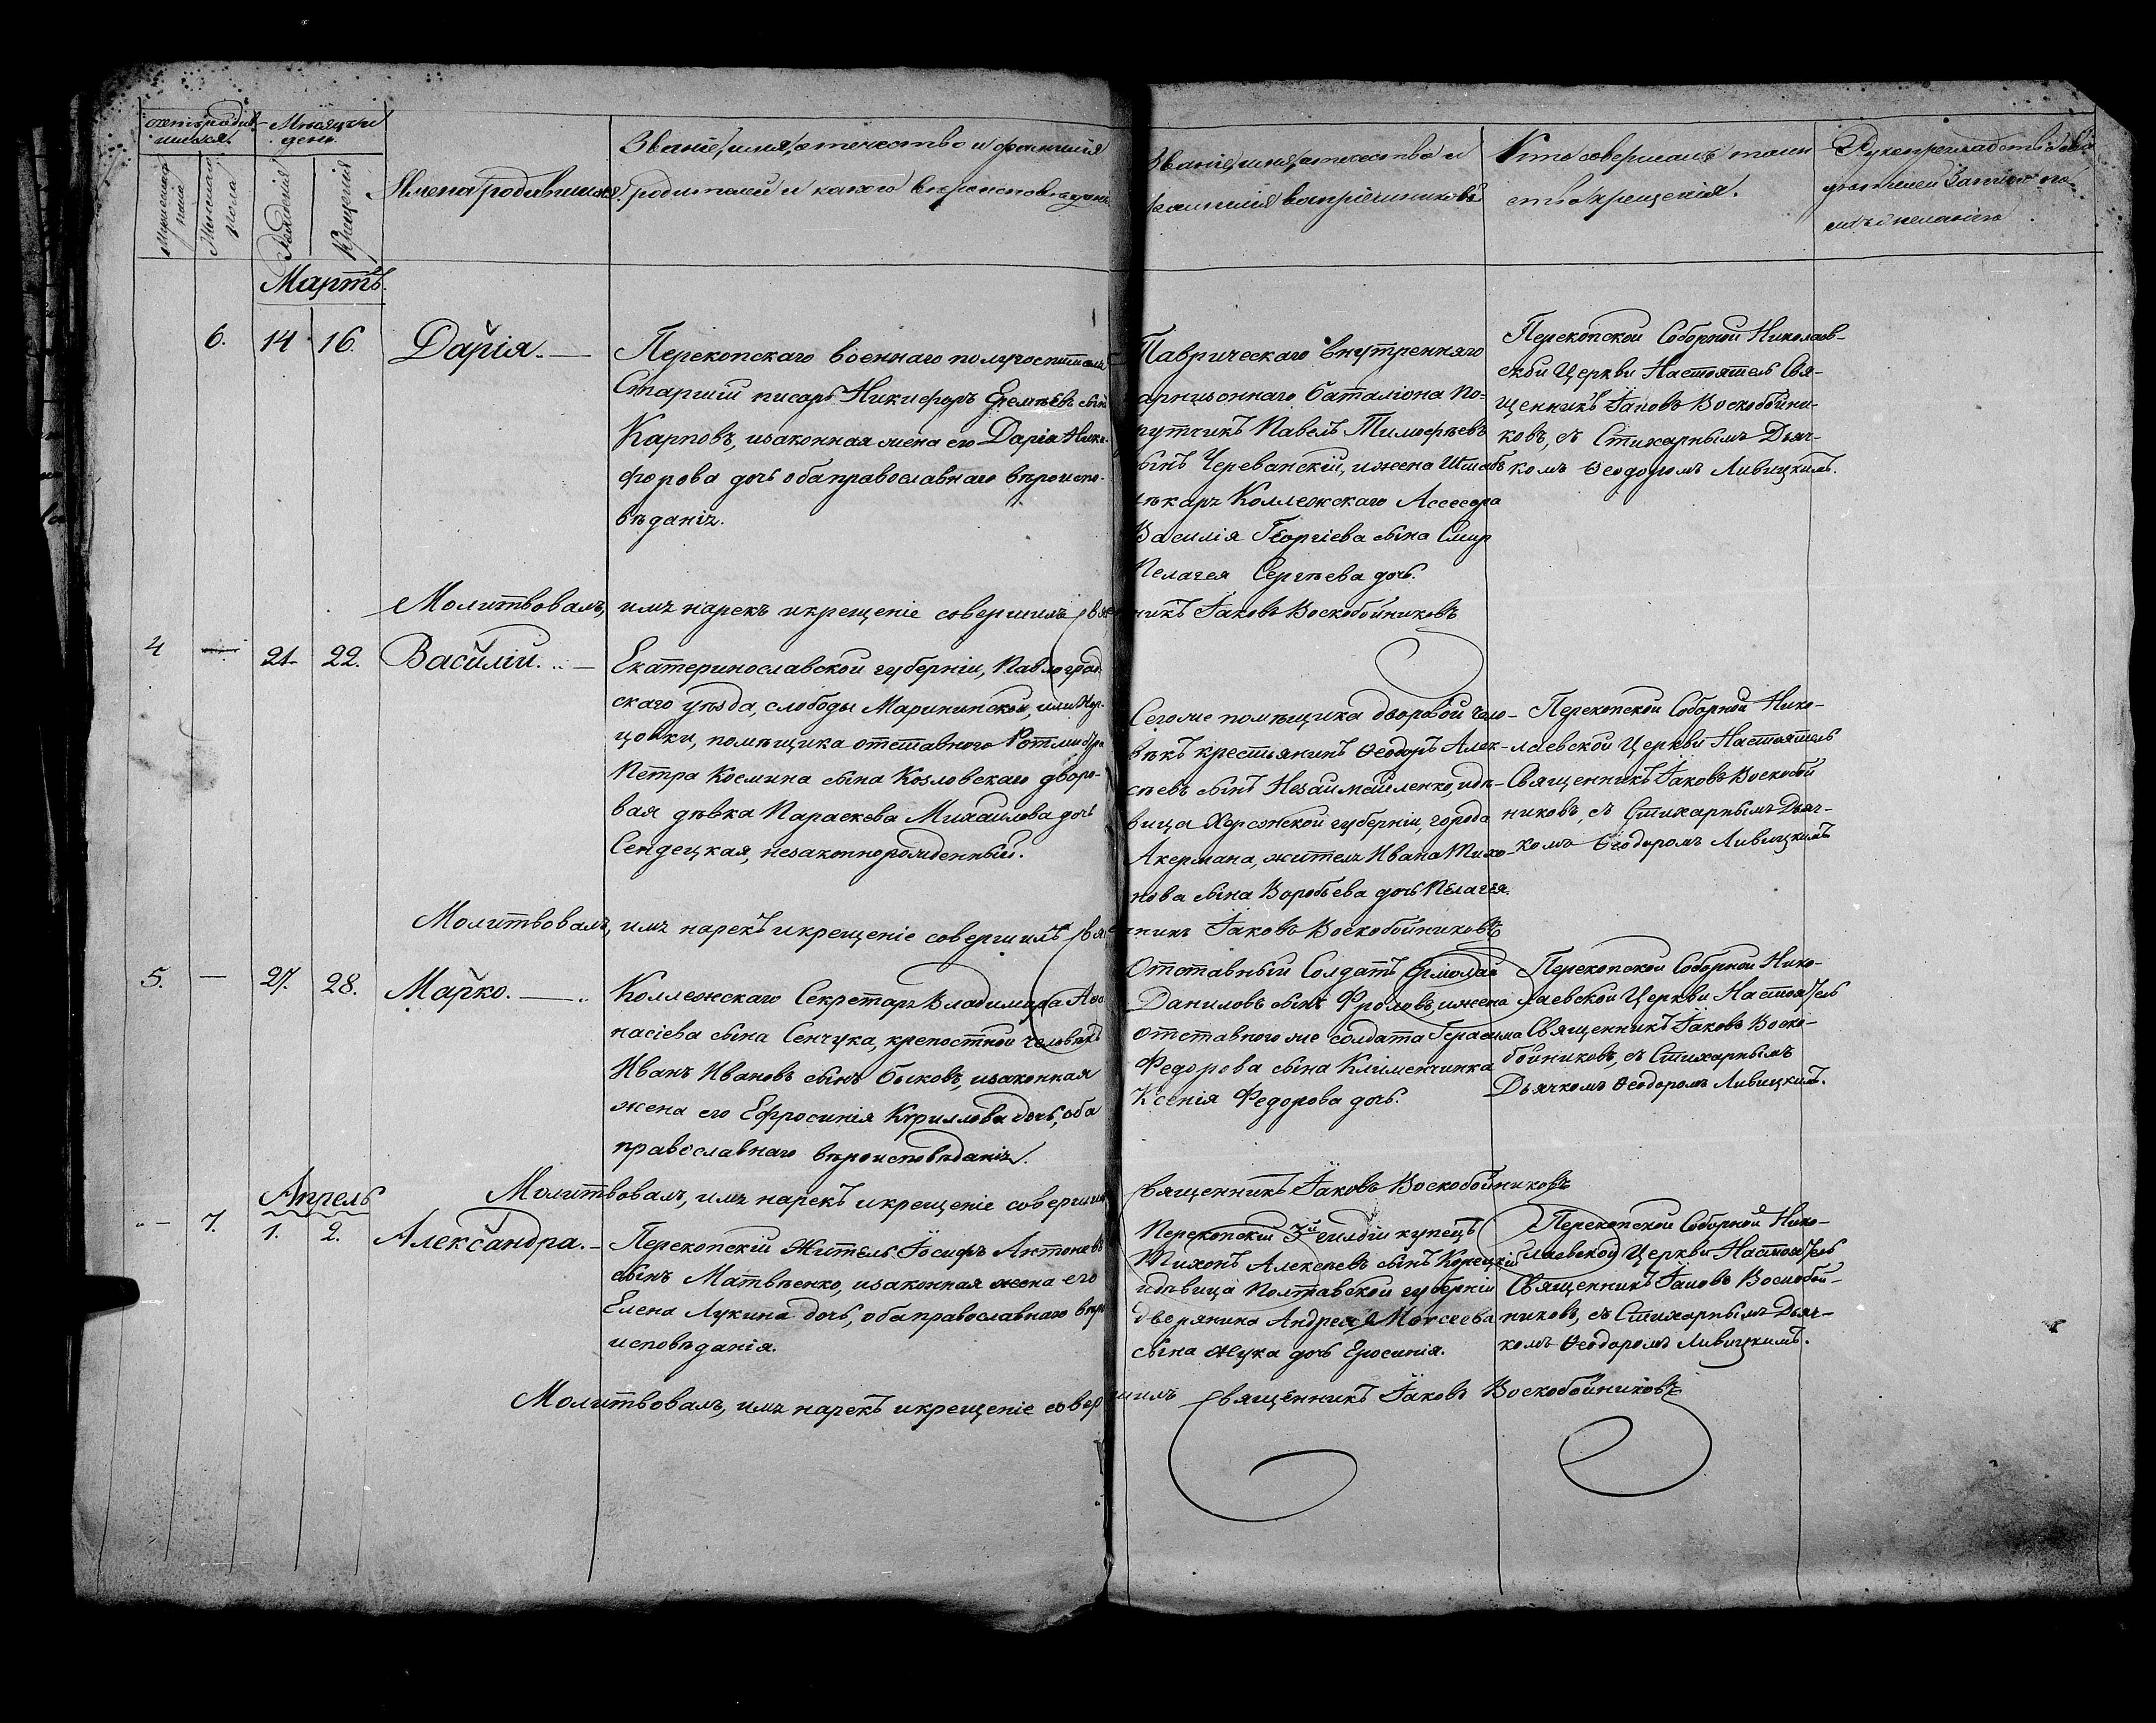 Счетъ родив-
шихся.
Мѣсяцъ и
день.
Мужескаго
пола
Женскаго
пола
Рожденія
Крещенія
Имена родившихся.
Званіе, имя, отечество и фамилія
родителей и какого вѣроисповѣданія
Званіе, имя, отечество и
фамилія воспріемниковъ
Кто совершалъ таин
ство крещенія.
Рукоприкладство сви
дѣтелей записи по
желанію
Мартъ.
6. 14 16. Дарія. —
Перекопскаго военнаго полугоспиталя
Старшій писарь Никифоръ Еремѣевъ сынъ
Карповъ, изаконная жена его Дарія Ники-
форова дочь оба православнаго вѣроиспо-
вѣданія.
Таврическаго внутренняго
гарнизоннаго баталіона По-
ручикъ Павелъ Тимофѣевъ
сынъ Череванскій, ижена Штабъ
лѣкаря Коллежскаго Ассесора
Василія Георгіева сына Смир
Пелагея Сергѣева дочь.
Перекопской Соборной Николаев-
ской Церкви Настоятель Свя-
щенникъ Іаковъ Воскобойни-
ковъ, съ Стихарнымъ Дьяч-
комъ Ѳеодоромъ Ливицкимъ.
Молитвовалъ, имя нарекъ икрещеніе совершилъ Священникъ Іаковъ Воскобойниковъ
4 — 21. 22. Василій. —
Екатеринославской губерніи, Павлоград-
скаго уѣзда, слободы Марининской, или
цовки, помѣщика отставного Ротмистра
Петра Космина сына Козловскаго дворо-
вая дѣвка Параскева Михайлова дочь
Сендецкая, незаконнорожденный.
Сегоже помѣщика дворовой чело-
вѣкъ крестьянинъ Ѳеодоръ Алек-
сѣевъ сынъ Незаймайленко, идѣ-
вица Херсонской губерніи, города
Акермана, жителя Ивана Тихо-
нова сына Воробьева дочь Пелагея.
Перекопской Соборной Нико-
лаевской Церкви Настоятель
Священникъ Іаковъ Воскобой
никовъ, съ Стихарнымъ Дьяч-
комъ Ѳеодоромъ Ливицкимъ
Молитвовалъ, имя нарекъ икрещеніе совершилъ Священникъ Іаковъ Воскобойниковъ
5. — 27. 28. Марко. —
Коллежскаго Секретаря Владимира Аѳо
насіева сына Сенчука, крепостной человѣкъ
Иванъ Ивановъ сынъ Быковъ, изаконная
жена его Ефросинія Кириллова дочь, оба
православнаго вѣроисповѣданія.
Отставный Солдатъ Ермолай
Даниловъ сынъ Фроловъ, ижена
отставного же солдата Герасима
Федорова сына Клименчинка
Ксенія Федорова дочь.
Перекопской Соборной Нико-
лаевской Церкви Настоятель
Священникъ Іаковъ Воско-
бойниковъ, съ Стихарнымъ
Дьячкомъ Ѳеодоромъ Ливицкимъ.
Молитвовалъ, имя нарекъ икрещеніе совершилъ Священникъ Іаковъ Воскобойниковъ
Апрель
— 7. 1. 2. Александра. —
Перекопскій Житель Іосифъ Антоневъ
сынъ Матвѣенко, изаконная жена его
Елена Лукина дочь, оба православнаго вѣро
исповѣданія.
Перекопскій 3й гилдіи купецъ
Тихонъ Алексѣевъ сынъ Корецкій
идѣвица Полтавской губерніи
дворянина Андрея Моисеева
сына Жука дочь Еросинія.
Перекопской Соборной Нико-
лаевской Церкви Настоятель
Священникъ Іаковъ Воскобой-
никовъ, съ Стихарнымъ Дьяч-
комъ Ѳеодоромъ Ливицкимъ.
Молитвовалъ, имя нарекъ икрещеніе совершилъ Священникъ Іаковъ Воскобойниковъ